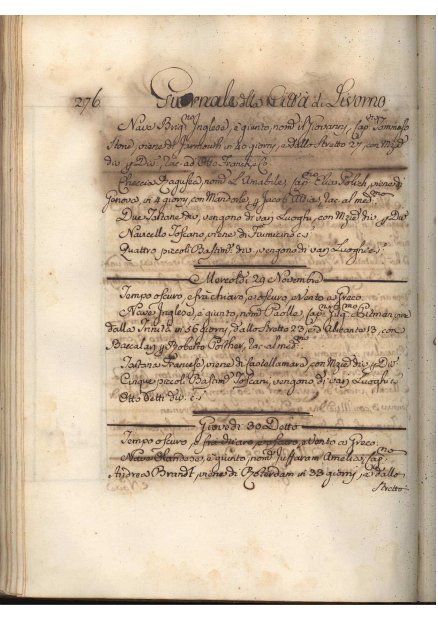 276 Giornale della Città di Livorno
Nave Brig.no Inglese, è giunto, nom.to il Giovanni, Cap. Tommaso
Stone, viene di Yarmouth in 40 giorni, e dallo Stretto 27, con
div. p. Div. rac. ad Otto Franck, e Co.
Checcia Ragusea, nom. L'Amabile, Cap. Elia Polich, viene di
Genova, in giorni, con Mandorle, p. Jacob Aldias, rac. al med.mo
Due Tartane div. vengono di varj Luoghi, con div. p. Div.
Navicello Toscano, viene di Fiumicino e s.
Quattro piccoli Bastim. div. vengono di varj Luoghi e s.
Mercoldì 29 Novembre
Tempo oscuro, e frà chiaro, e oscuro, e Vento a Greco.
Nave Inglese, è giunto, nom.to Paolle, Cap.
dalla in 56 giorni, dallo Stretto 23, e da Alicante 13, con
Baccalar p. Roberto Porther, rac. al med.mo
Tartana Francese, viene di Castellamara, con div. p. Div.
Cinque piccoli Bastim. Toscani, vengono di varj Luoghi e
Otto detti div. e s.
Giovedì 30 Detto
Tempo oscuro, e frà chiaro, e oscuro, e Vento a Greco.
Nave Olandese, è giunto, nom. Juffaram Amelia, Cap.no
Andrea Brandt, viene di Roterdam in 33 giorni, e dallo
Stretto